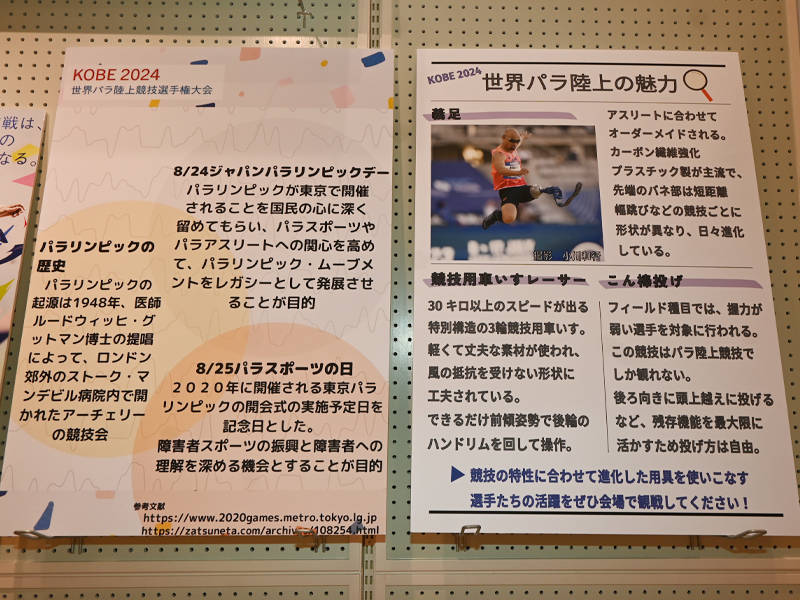 戦は、
の
なる。
KOBE 2024
世界パラ陸上競技選手権大会
8/24ジャパンパラリンピックデー
パラリンピックが東京で開催
されることを国民の心に深く
留めてもらい、パラスポーツや
パラアスリートへの関心を高め
て、パラリンピック・ムーブメ
ントをレガシーとして発展させ
ることが目的
パラリンピックの
歴史
パラリンピックの
起源は1948年、医師
ルードウィッヒ・グ
ットマン博士の提唱
によって、ロンドン
郊外のストーク・マ
ンデビル病院内で開
かれたアーチェリー
の競技会
8/25パラスポーツの日
2020年に開催される東京パラ
リンピックの開会式の実施予定日を
記念日とした。
障害者スポーツの振興と障害者への
理解を深める機会とすることが目的
参考文献
https://www.2020games.metro.tokyo.lg.jp
https://zatsuneta.com/archives/108254.html
KOBE 2024
世界パラ陸上の魅力
義足
アスリートに合わせて
オーダーメイドされる。
カーボン繊維強化
プラスチック製が主流で、
先端のバネ部は短距離
幅跳びなどの競技ごとに
形状が異なり、日々進化
している。
撮影 小川和行
競技用車いすレーサー
30キロ以上のスピードが出る
特別構造の3輪競技用車いす。
軽くて丈夫な素材が使われ、
風の抵抗を受けない形状に
工夫されている。
できるだけ前傾姿勢で後輪の
ハンドリムを回して操作。
こん棒投げ
フィールド種目では、握力が
弱い選手を対象に行われる。
この競技はパラ陸上競技で
しか観れない。
後ろ向きに頭上越えに投げる
など、残存機能を最大限に
活かすため投げ方は自由。
▶競技の特性に合わせて進化した用具を使いこなす
選手たちの活躍をぜひ会場で観戦してください!